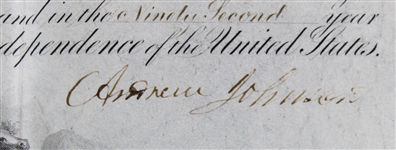 and in the Ninety Second Year
dependence of the United States.
Andrew Johnson